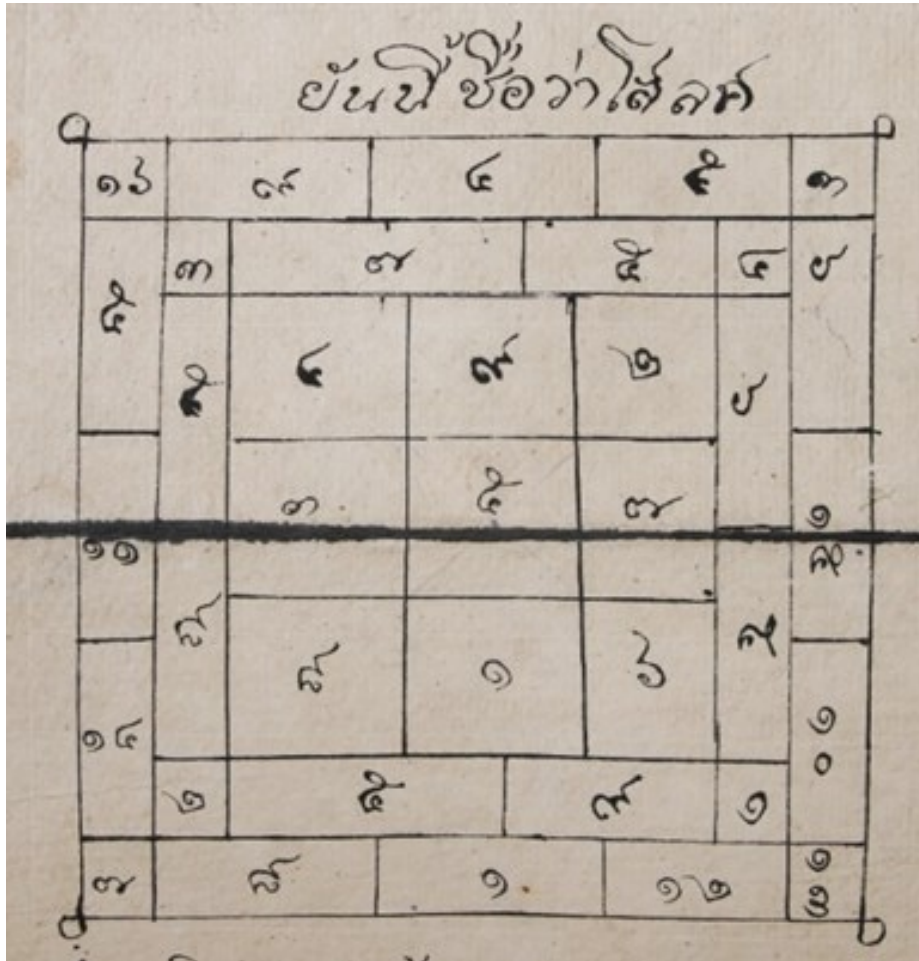 ยันนี้ชื่อว่าโสลศ
๑๖ ๙ ๔ ๕ ๓
๕ ๓ ๗ ๕ ๔ ๖
๕ ๔ ๙ ๒ ๖
๓ ๕ ๗
๑๑ ๑๕
๘ ๘ ๑ ๖
๑๔ ๑๐
๒ ๕ ๙ ๑
๗ ๘ ๑ ๑๒ ๑๓